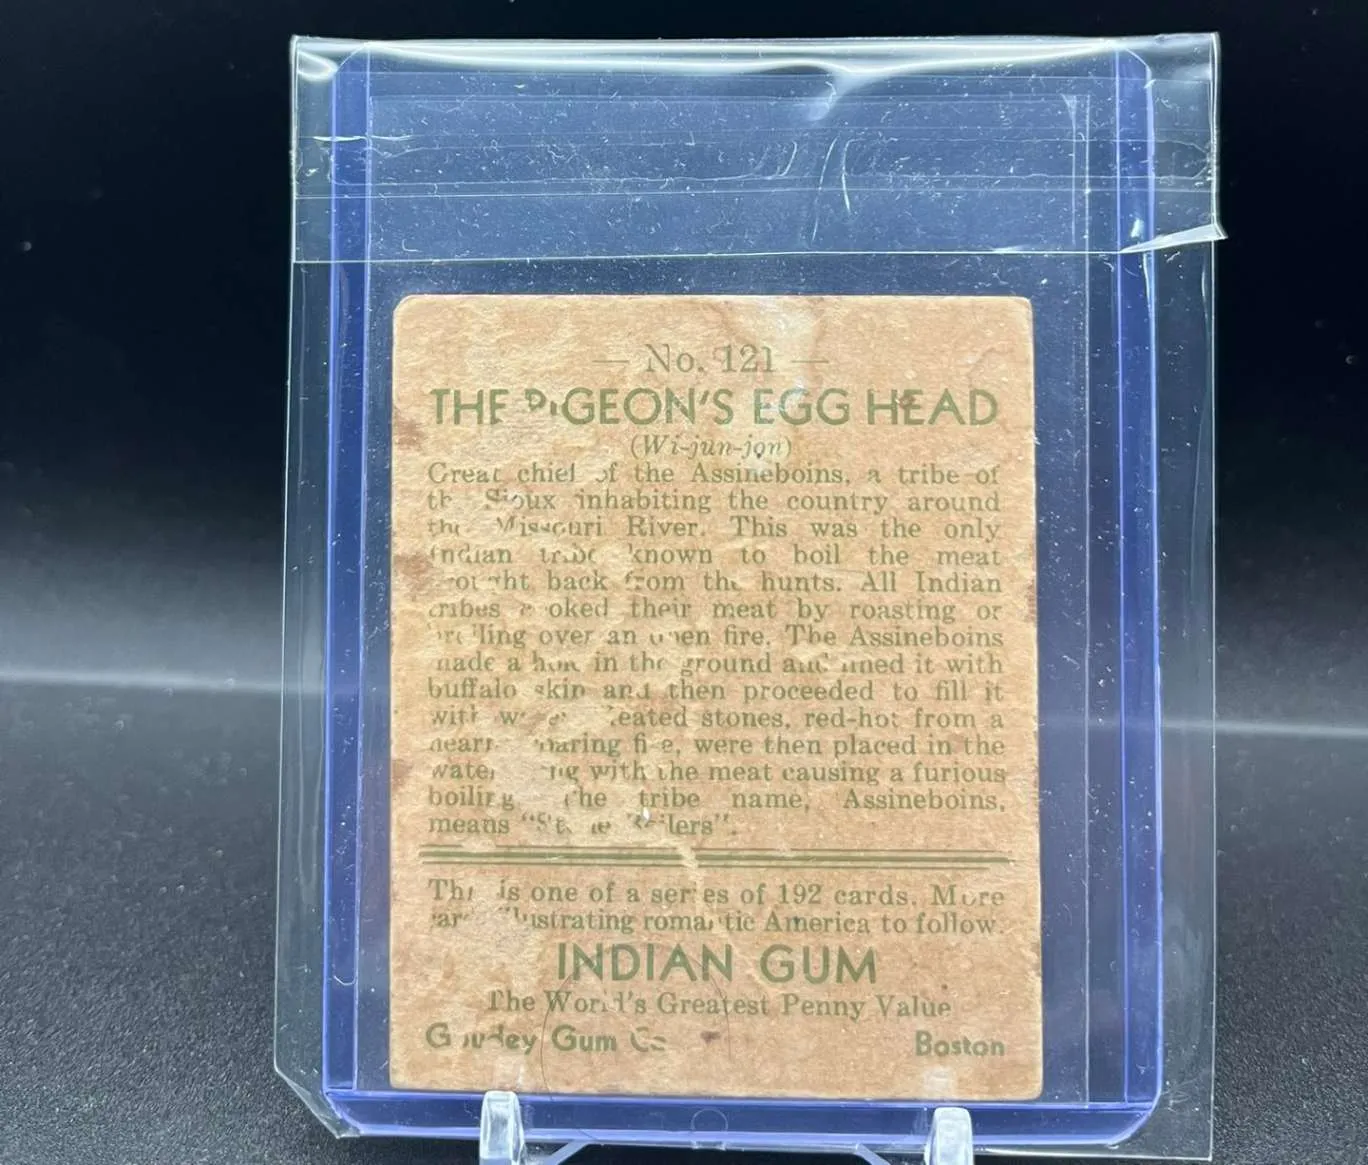 — No. 121 —
THE PIGEON'S EGG HEAD
(Wi-jun-jon)
Great chief of the Assineboins, a tribe of
the Sioux inhabiting the country around
the Missouri River. This was the only
Indian tribe known to boil the meat
brought back from the hunts. All Indian
tribes cooked their meat by roasting or
broiling over an open fire. The Assineboins
made a hole in the ground and lined it with
buffalo skin and then proceeded to fill it
with water. Heated stones, red-hot from a
nearby roaring fire, were then placed in the
water along with the meat causing a furious
boiling. The tribe name, Assineboins,
means "Stone Boilers".
This is one of a series of 192 cards. More
cards illustrating romantic America to follow.
INDIAN GUM
The World's Greatest Penny Value
Goudey Gum Co. Boston